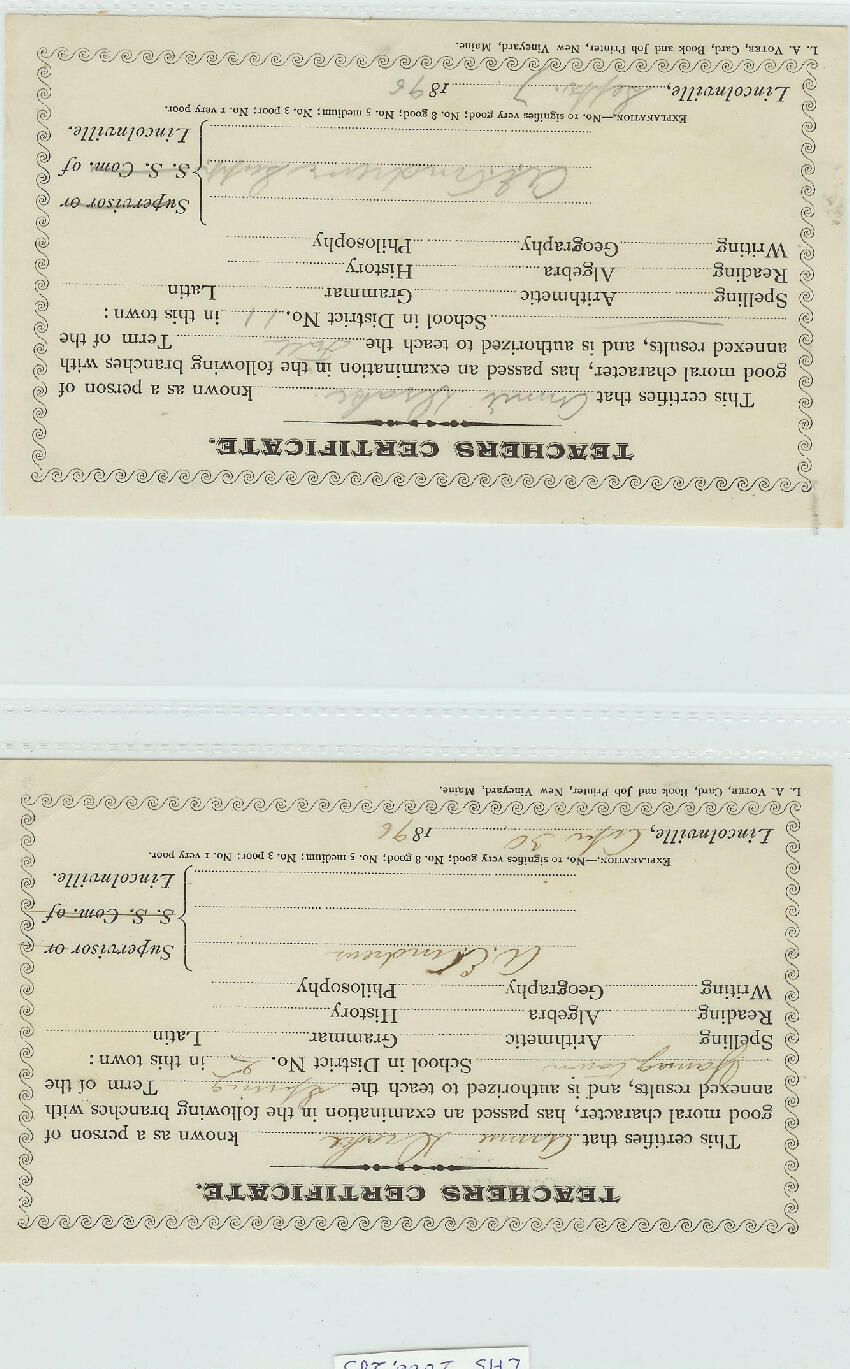 LHS
TEACHERS CERTIFICATE.
This certifies that Annie Drake known as a person of
good moral character, has passed an examination in the following branches with
annexed results, and is authorized to teach the Spring Term of the
Youngtown School in District No. 2 in this town:
Spelling Arithmetic Grammar Latin
Reading Algebra History
Writing Geography Philosophy
A. E. Andrews
Supervisor or
S. S. Com. of
Lincolnville.
EXPLANATION.—No. 10 signifies very good; No. 8 good; No. 5 medium; No. 3 poor; No. 1 very poor.
Lincolnville, Apr 30 1896
L. A. VOTER, Card, Book and Job Printer, New Vineyard, Maine.
TEACHERS CERTIFICATE.
This certifies that Annie Drake known as a person of
good moral character, has passed an examination in the following branches with
annexed results, and is authorized to teach the Fall Term of the
School in District No. 11 in this town:
Spelling Arithmetic Grammar Latin
Reading Algebra History
Writing Geography Philosophy
Supervisor or
A E Andrews Supt.
S. S. Com. of
Lincolnville.
EXPLANATION.—No. 10 signifies very good; No. 8 good; No. 5 medium; No. 3 poor; No. 1 very poor.
Lincolnville, Sept. 7 1896
L. A. VOTER, Card, Book and Job Printer, New Vineyard, Maine.